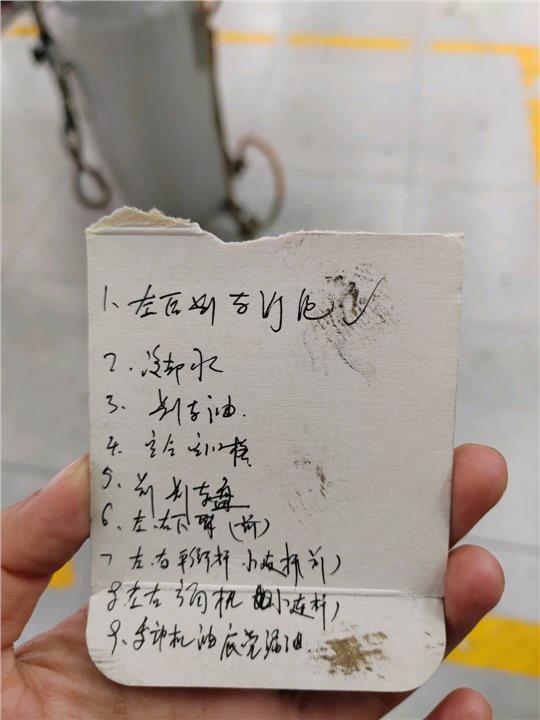 1、左后刹车灯泡 ✓
2、冷却水
3、刹车油
4、
5、前刹车盘
6、左、右下臂(前)
7、左右平衡杆小连杆前)
8、左右方向机 小连杆)
9、发动机油底壳漏油